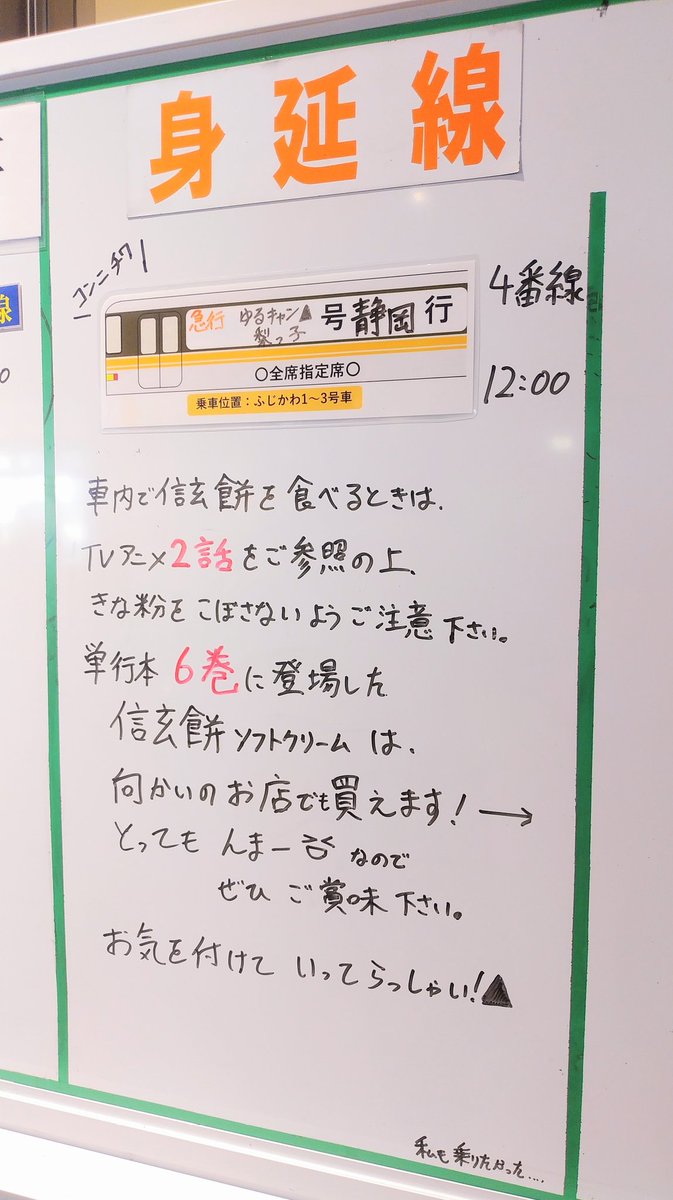 身延線
コンニチワ!
急行 ゆるキャン▲梨っ子 号静岡行
〇全席指定席〇
乗車位置：ふじかわ1～3号車
4番線
12:00
車内で信玄餅を食べるときは、
TVアニメ2話をご参照の上、
きな粉をこぼさないようご注意下さい。
単行本6巻に登場した
信玄餅ソフトクリームは、
向かいのお店でも買えます!→
とってもんまー なので
ぜひご賞味下さい。
お気を付けていってらっしゃい!▲
私も乗りたかった....
線